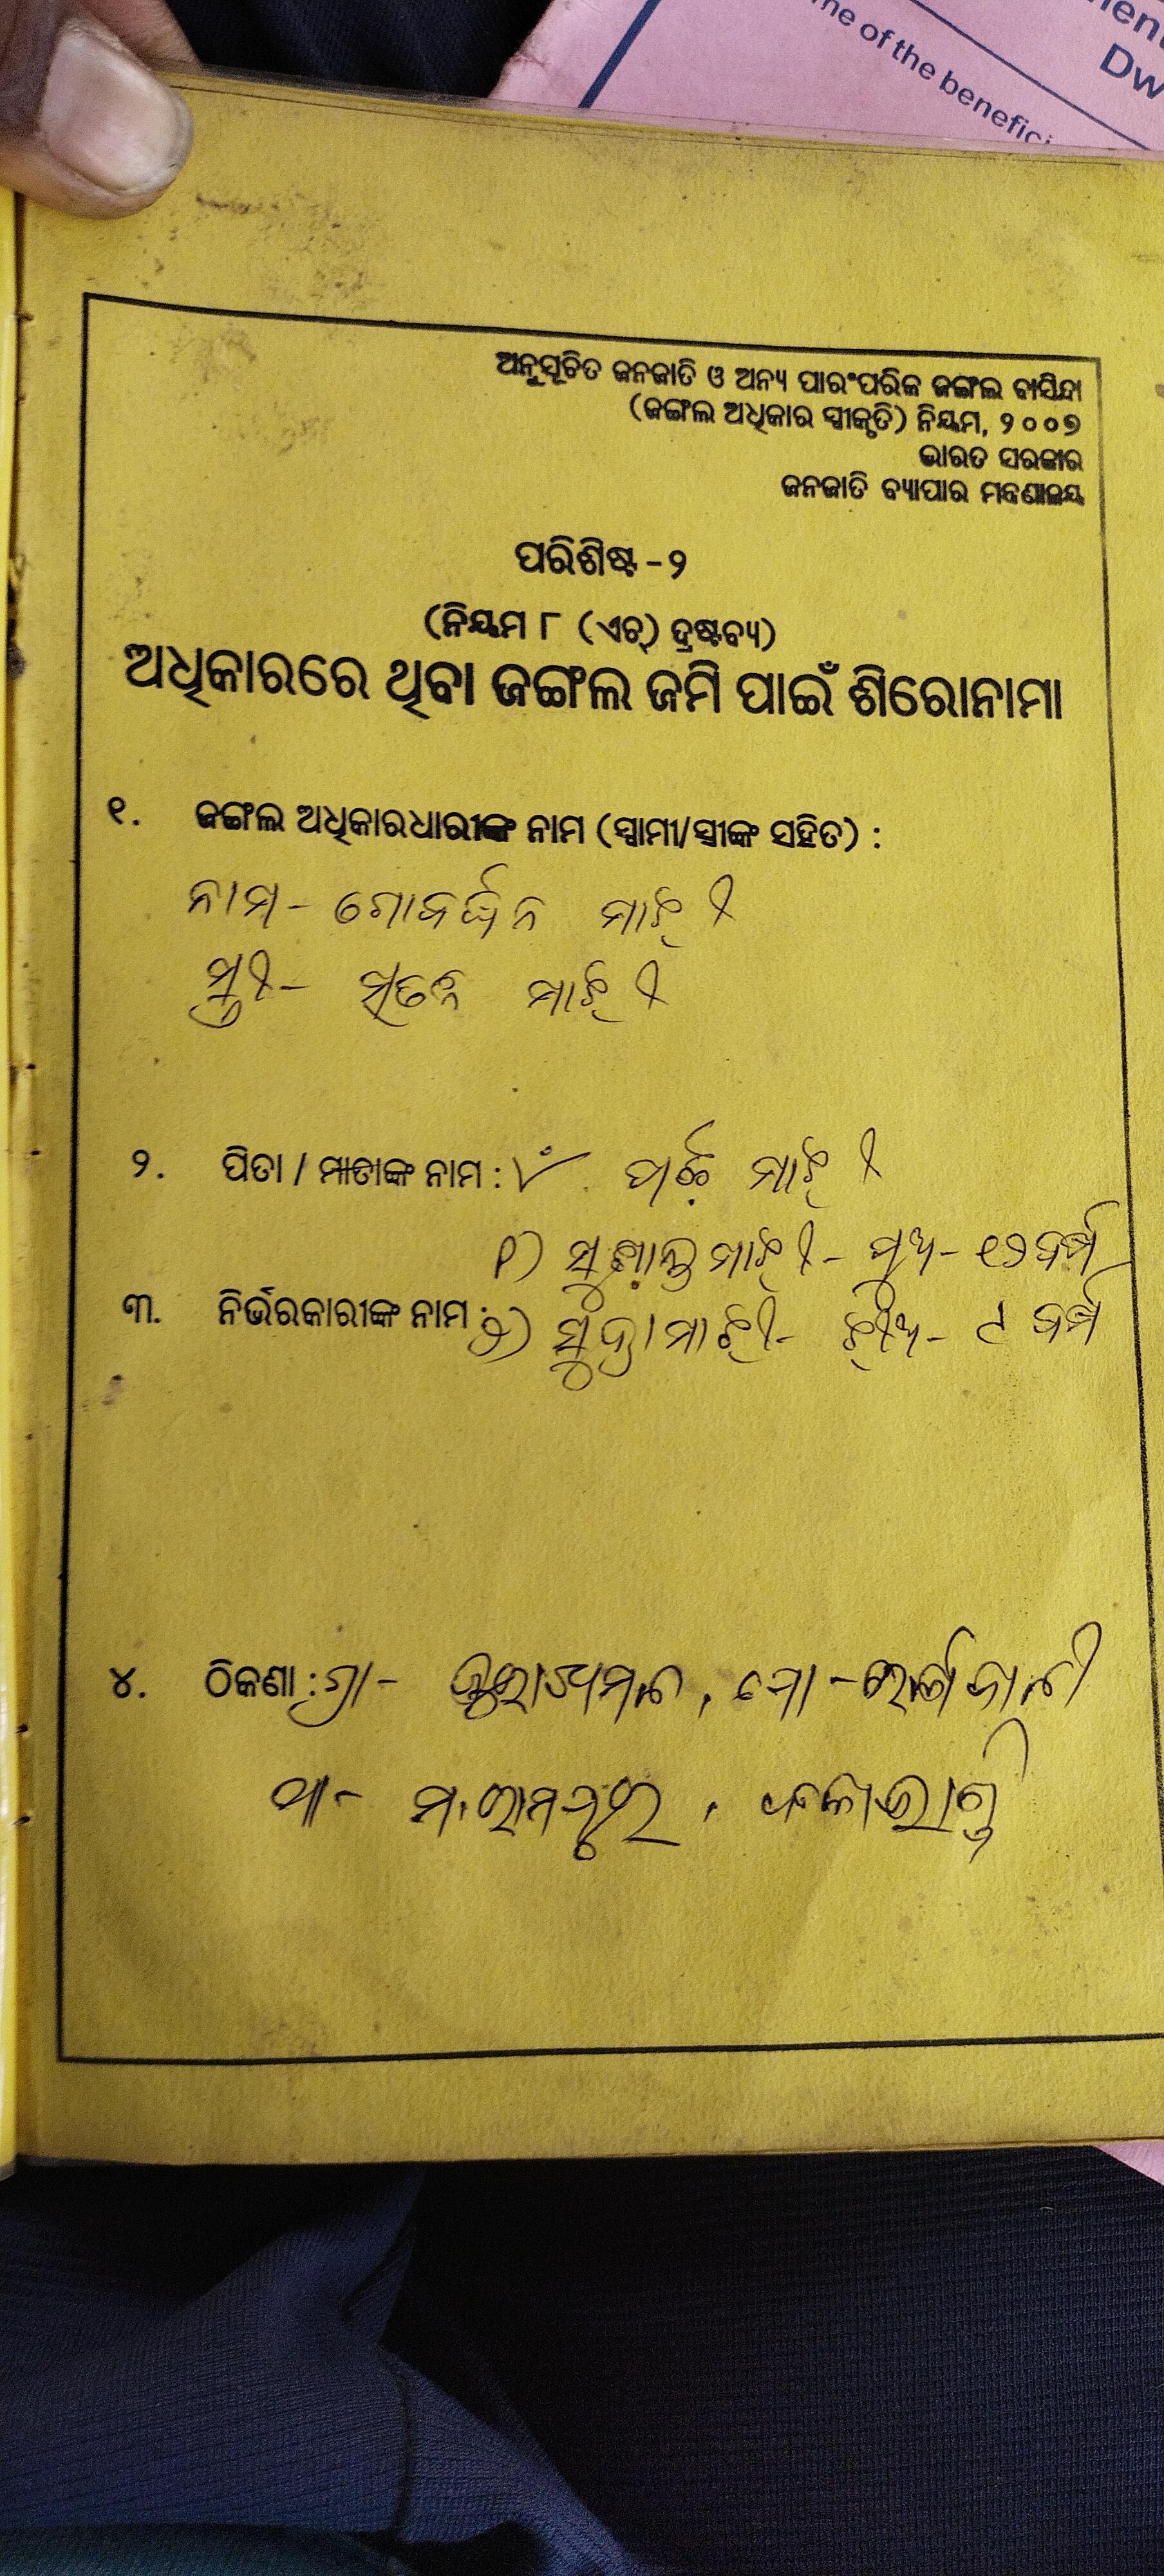 ment
Dw
me of the benefici
ଅନୁସୂଚିତ ଜନଜାତି ଓ ଅନ୍ୟ ପାରଂପରିକ ଜଙ୍ଗଲ ବାସିନ୍ଦା
(ଜଙ୍ଗଲ ଅଧିକାର ସ୍ୱୀକୃତି) ନିୟମ, ୨୦୦୭
ଭାରତ ସରକାର
ଜନଜାତି ବ୍ୟାପାର ମନ୍ତ୍ରଣାଳୟ
ପରିଶିଷ୍ଟ - ୨
(ନିୟମ ୮ (ଏଚ୍) ଦ୍ରଷ୍ଟବ୍ୟ)
ଅଧିକାରରେ ଥିବା ଜଙ୍ଗଲ ଜମି ପାଇଁ ଶିରୋନାମା
୧. ଜଙ୍ଗଲ ଅଧିକାରଧାରୀଙ୍କ ନାମ (ସ୍ୱାମୀ/ସ୍ତ୍ରୀଙ୍କ ସହିତ) :
ନାମ - ଗୋବର୍ଦ୍ଧନ ମାଝୀ
ସ୍ତ୍ରୀ - ମାଝୀ
୨. ପିତା / ମାତାଙ୍କ ନାମ : ମାଝୀ
୧) ସୁଶାନ୍ତ ମାଝୀ - ପୁଅ - ୧୨ ବର୍ଷ
୩. ନିର୍ଭରକାରୀଙ୍କ ନାମ :
୨) ମାଝୀ - ଝିଅ - ୯ ବର୍ଷ
୪. ଠିକଣା : ଗ୍ରା -
ଥା - ମ. ରାମପୁର, କଳାହାଣ୍ଡି